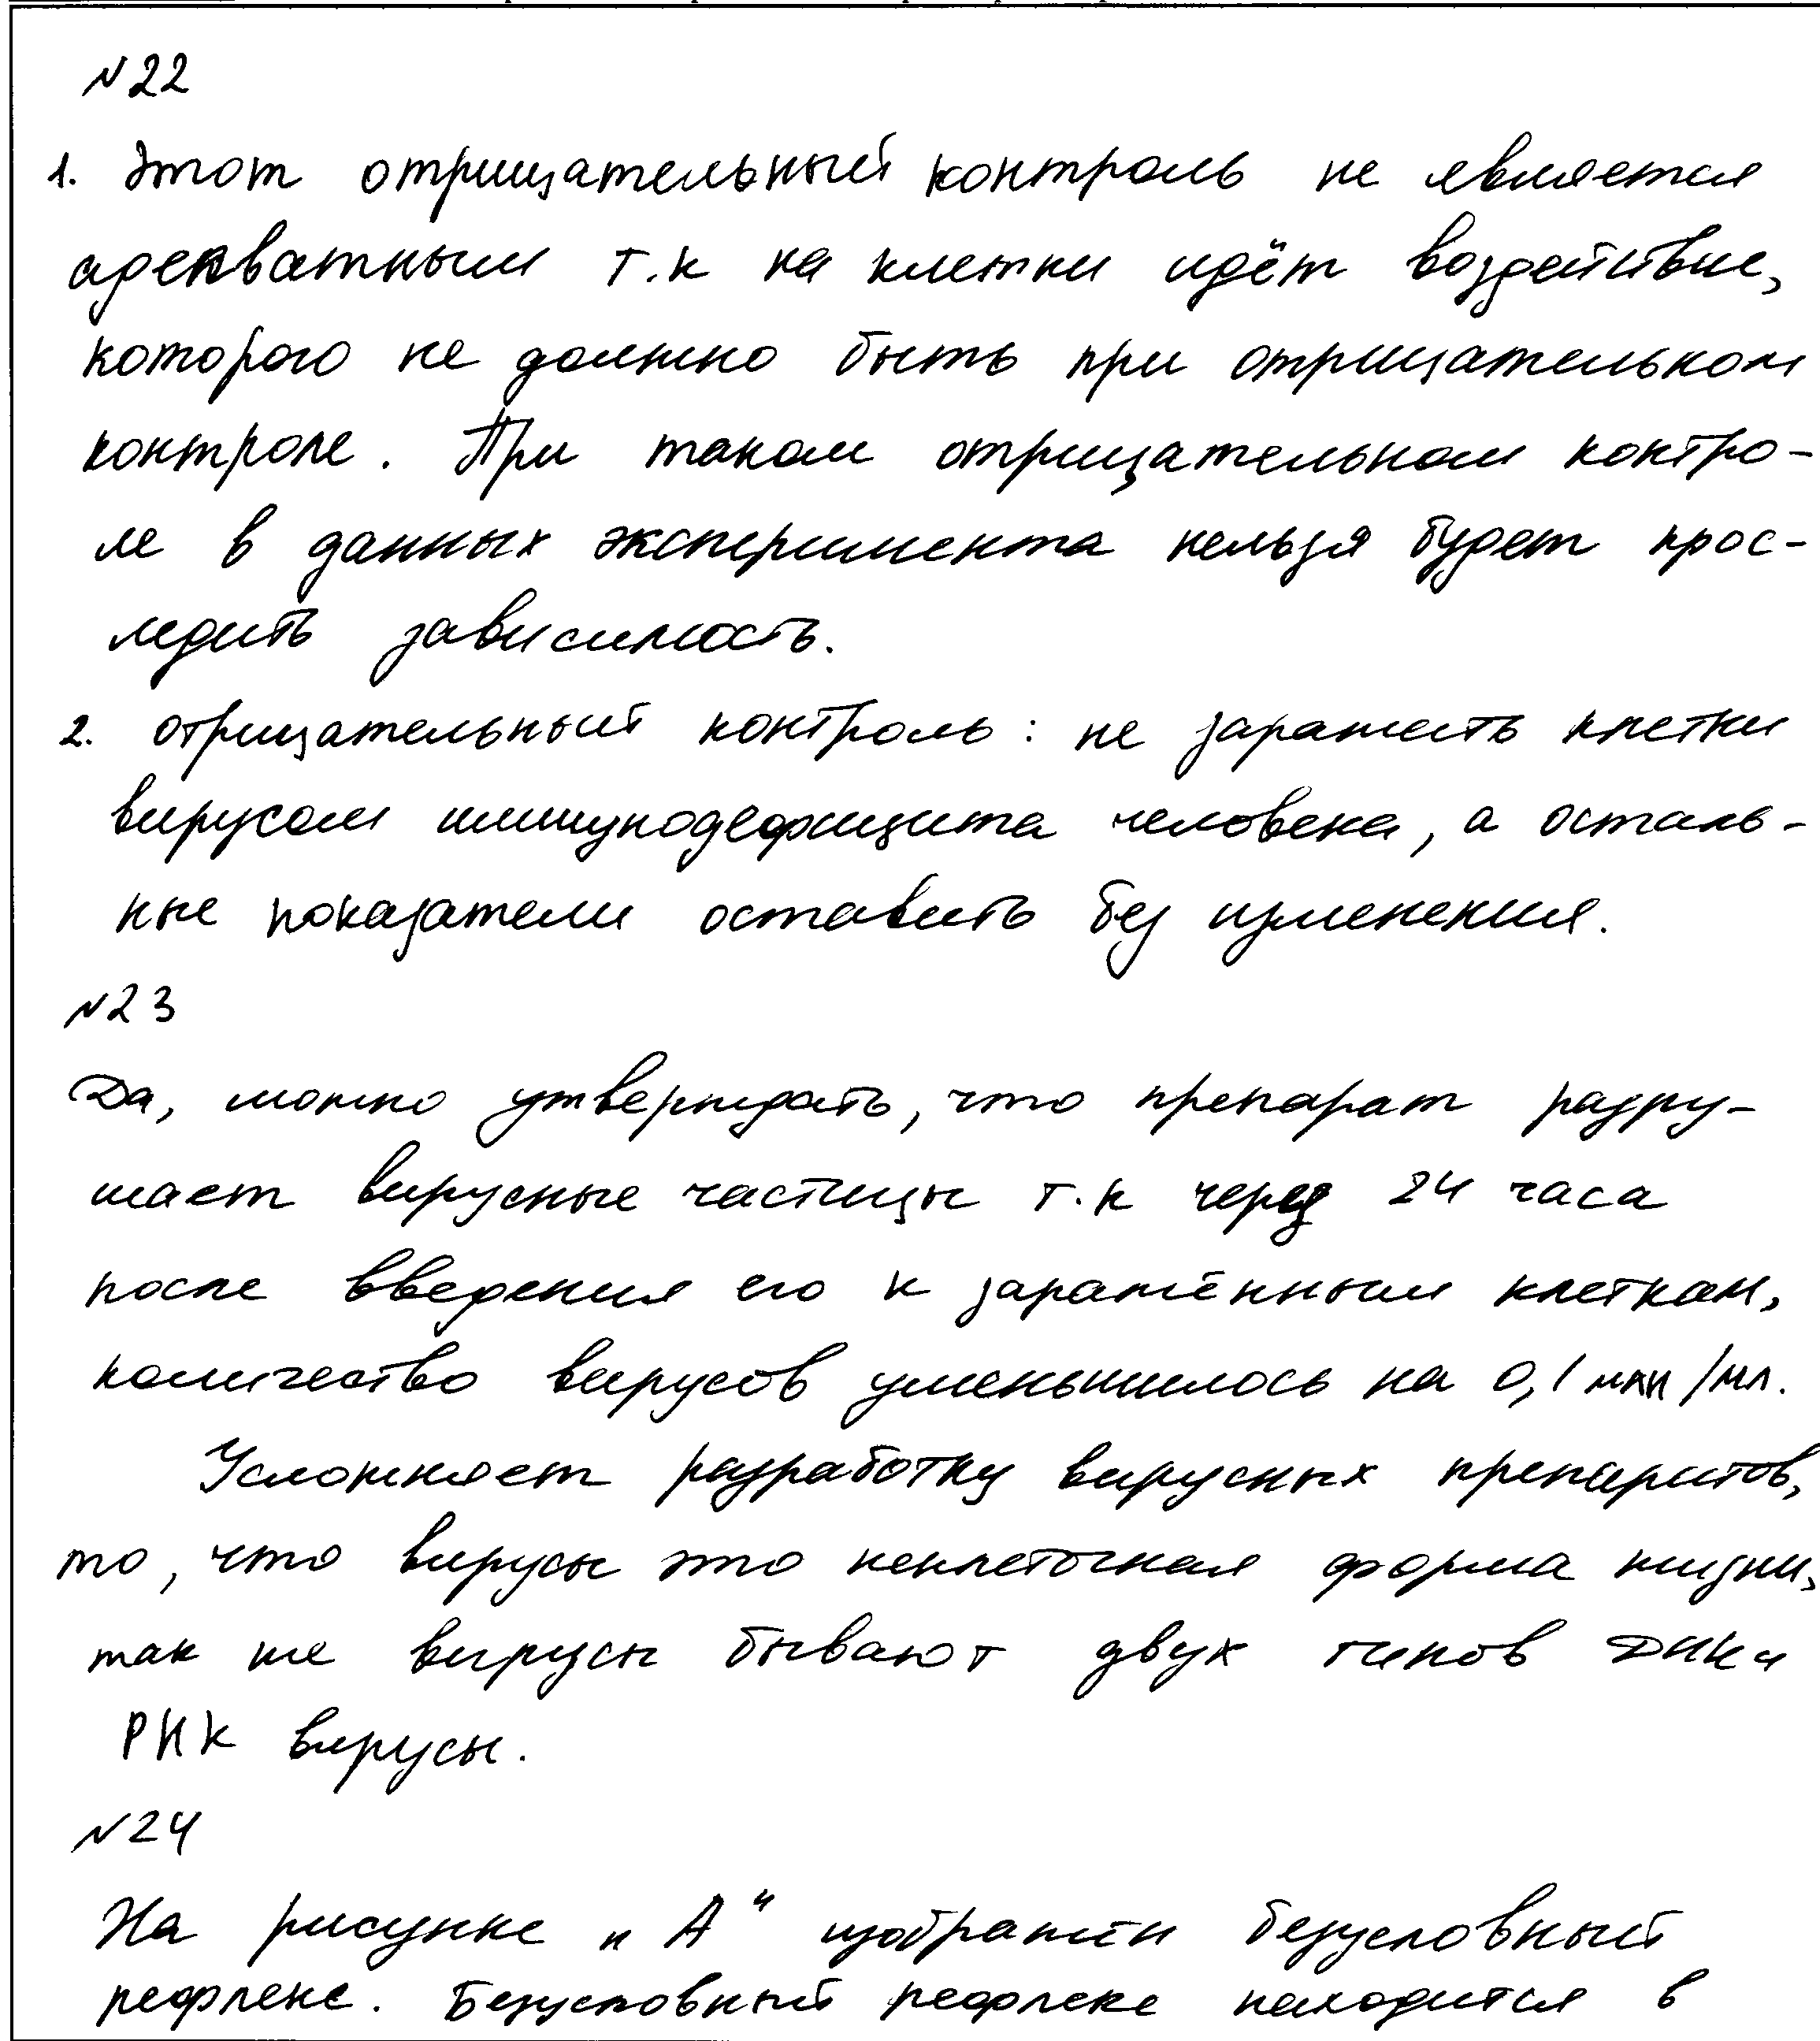 №22
1. Этот отрицательный контроль не является
адекватным т.к на клетки идёт воздействие,
которого не должно быть при отрицательном
контроле. При таком отрицательном контро-
ле в данных эксперимента нельзя будет прос-
ледить зависимость.
2. отрицательный контроль: не заражать клетки
вирусом иммунодефицита человека, а осталь-
ные показатели оставить без изменения.
№23
Да, можно утверждать, что препарат разру-
шает вирусные частицы т.к через 24 часа
после введения его к заражённым клеткам,
количество вирусов уменьшилось на 0,1 мкн/мл.
Усложняет разработку вирусных препаратов,
то, что вирусы это неклеточная форма жизни,
так же вирусы бывают двух типов ДНК и
РНК вирусы.
№24
На рисунке „А" изображён безусловный
рефлекс. Безусловный рефлекс находится в